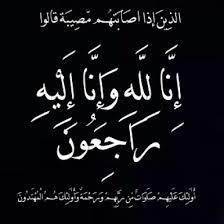 الذين إذا أصابتهم مصيبة قالوا
إِنَّا لِلَّهِ وَإِنَّا إِلَيْهِ
رَاجِعُونَ
أُولَئِكَ عَلَيْهِمْ صَلَوَاتٌ مِنْ رَبِّهِمْ وَرَحْمَةٌ وَأُولَئِكَ هُمُ الْمُهْتَدُونَ